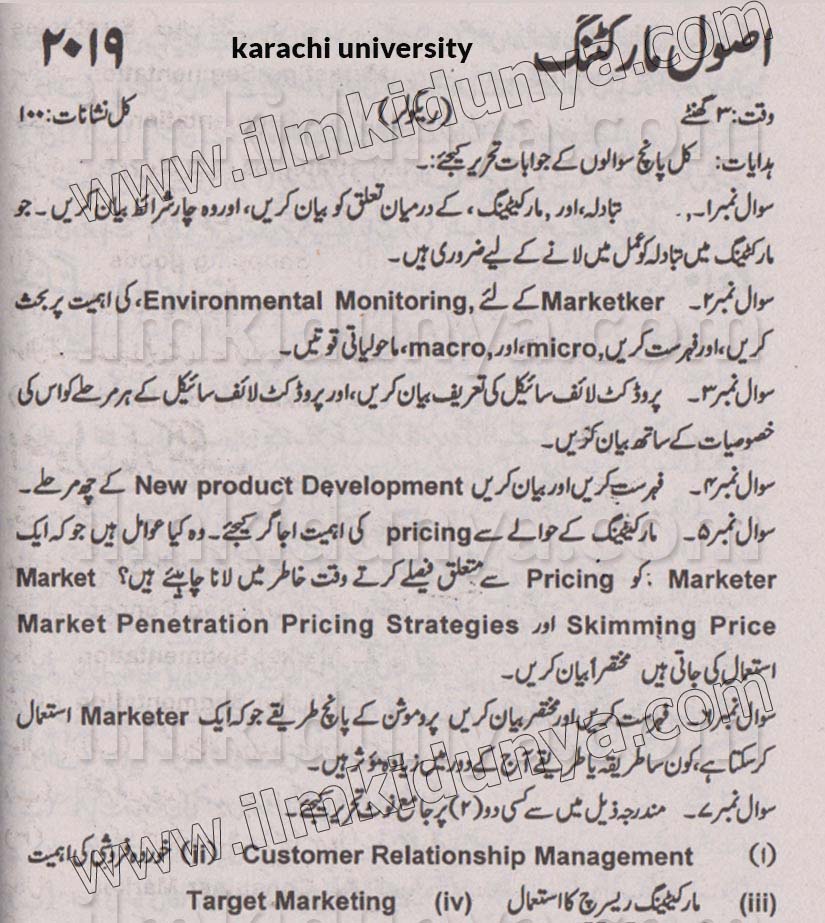 اصول مارکٹنگ karachi university ۲۰۱۹
وقت: ۳ گھنٹے (ریگولر) کل نشانات: ۱۰۰
ہدایات: کل پانچ سوالوں کے جوابات تحریر کیجئے:۔
سوال نمبر۱۔ تبادلہ، اور، مارکیٹینگ، کے درمیان تعلق کو بیان کریں، اور وہ چار شرائط بیان کریں۔ جو
مارکٹینگ میں تبادلہ کو عمل میں لانے کے لیے ضروری ہیں۔
سوال نمبر۲۔ Marketker کے لئے ,Environmental Monitoring، کی اہمیت پر بحث
کریں، اور فہرست کریں ,micro، اور ,macro، ماحولیاتی قوتیں۔
سوال نمبر۳۔ پروڈکٹ لائف سائیکل کی تعریف بیان کریں، اور پروڈکٹ لائف سائیکل کے ہر مرحلے کو اس کی
خصوصیات کے ساتھ بیان کریں۔
سوال نمبر۴۔ فہرست کریں اور بیان کریں New product Development کے چھ مرحلے۔
سوال نمبر۵۔ مارکیٹینگ کے حوالے سے pricing کی اہمیت اجاگر کیجئے۔ وہ کیا عوامل ہیں جو کہ ایک
Marketer کو Pricing سے متعلق فیصلے کرتے وقت خاطر میں لانا چاہیئے ہیں؟ Market
Skimming Price اور Market Penetration Pricing Strategies
استعمال کی جاتی ہیں مختصراً بیان کریں۔
سوال نمبر۶۔ فہرست کریں اور مختصر بیان کریں پروموشن کے پانچ طریقے جو کہ ایک Marketer استعمال
کرسکتا ہے، کون سا طریقہ یا طریقے آج کے دور میں زیادہ مؤثر ہیں۔
سوال نمبر۷۔ مندرجہ ذیل میں سے کسی دو (۲) پر جامع نوٹ تحریر کیجئے۔
(i) Customer Relationship Management (ii) خوردہ فروشی کی اہمیت
(iii) مارکیٹینگ ریسرچ کا استعمال (iv) Target Marketing
www.ilmkidunya.com
www.ilmkidunya.com
ilmkidunya.com
ilmkidunya.com
ilmkidunya.com
ilmkidunya.com